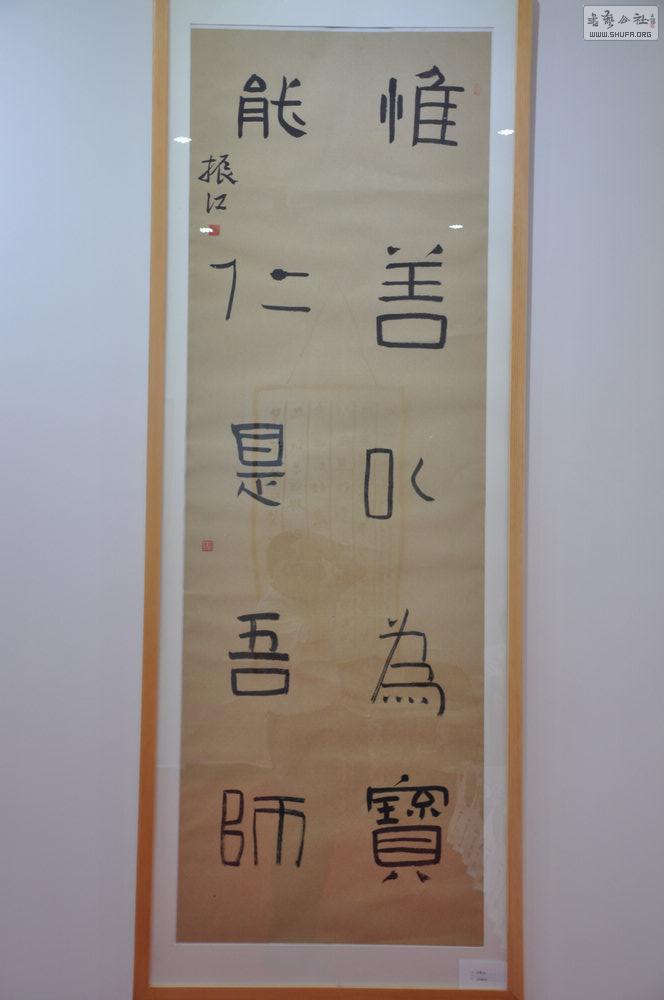 惟善以為寶
能仁是吾師
振江
書藝公社
WWW.SHUFA.ORG